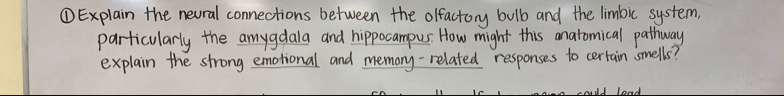 ① Explain the neural connections between the olfactory bulb and the limbic system,
particularly the amygdala and hippocampus. How might this anatomical pathway
explain the strong emotional and memory-related responses to certain smells?
could lead